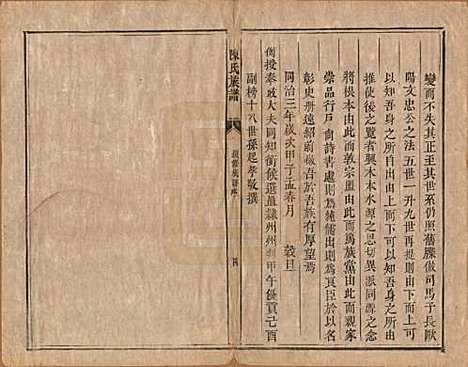 變而不失其正至其世系仍照舊牒倣司馬子長歐
陽文忠公之法五世一升九世再提則由下可以知上
以知吾身之所自出由上而下可以知吾身之所出
推使後之覽者興木本水源之思切異派同源之念
將根本由此而敦宗盟由此而篤族黨由此而親家
崇品行戶尚詩書處則為純儒出則為良臣於以名
彰史冊遠紹前徽吾於吾族有厚望焉
同治三年歲次甲子孟春月 穀旦
誥授奉政大夫同知銜候選直隸州州判甲午優貢己酉
副榜十八世孫起孝敬撰
陳氏族譜
續修族譜序
四